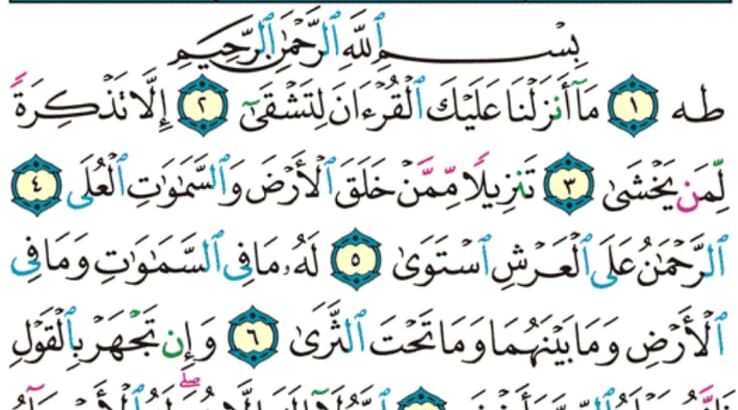 بِسْمِ ٱللَّهِ ٱلرَّحْمَٰنِ ٱلرَّحِيمِ
طه ١ مَآ أَنزَلْنَا عَلَيْكَ ٱلْقُرْءَانَ لِتَشْقَىٰٓ ٢ إِلَّا تَذْكِرَةً
لِّمَن يَخْشَىٰ ٣ تَنزِيلًا مِّمَّنْ خَلَقَ ٱلْأَرْضَ وَٱلسَّمَٰوَٰتِ ٱلْعُلَى ٤
ٱلرَّحْمَٰنُ عَلَى ٱلْعَرْشِ ٱسْتَوَىٰ ٥ لَهُۥ مَا فِى ٱلسَّمَٰوَٰتِ وَمَا فِى
ٱلْأَرْضِ وَمَا بَيْنَهُمَا وَمَا تَحْتَ ٱلثَّرَىٰ ٦ وَإِن تَجْهَرْ بِٱلْقَوْلِ